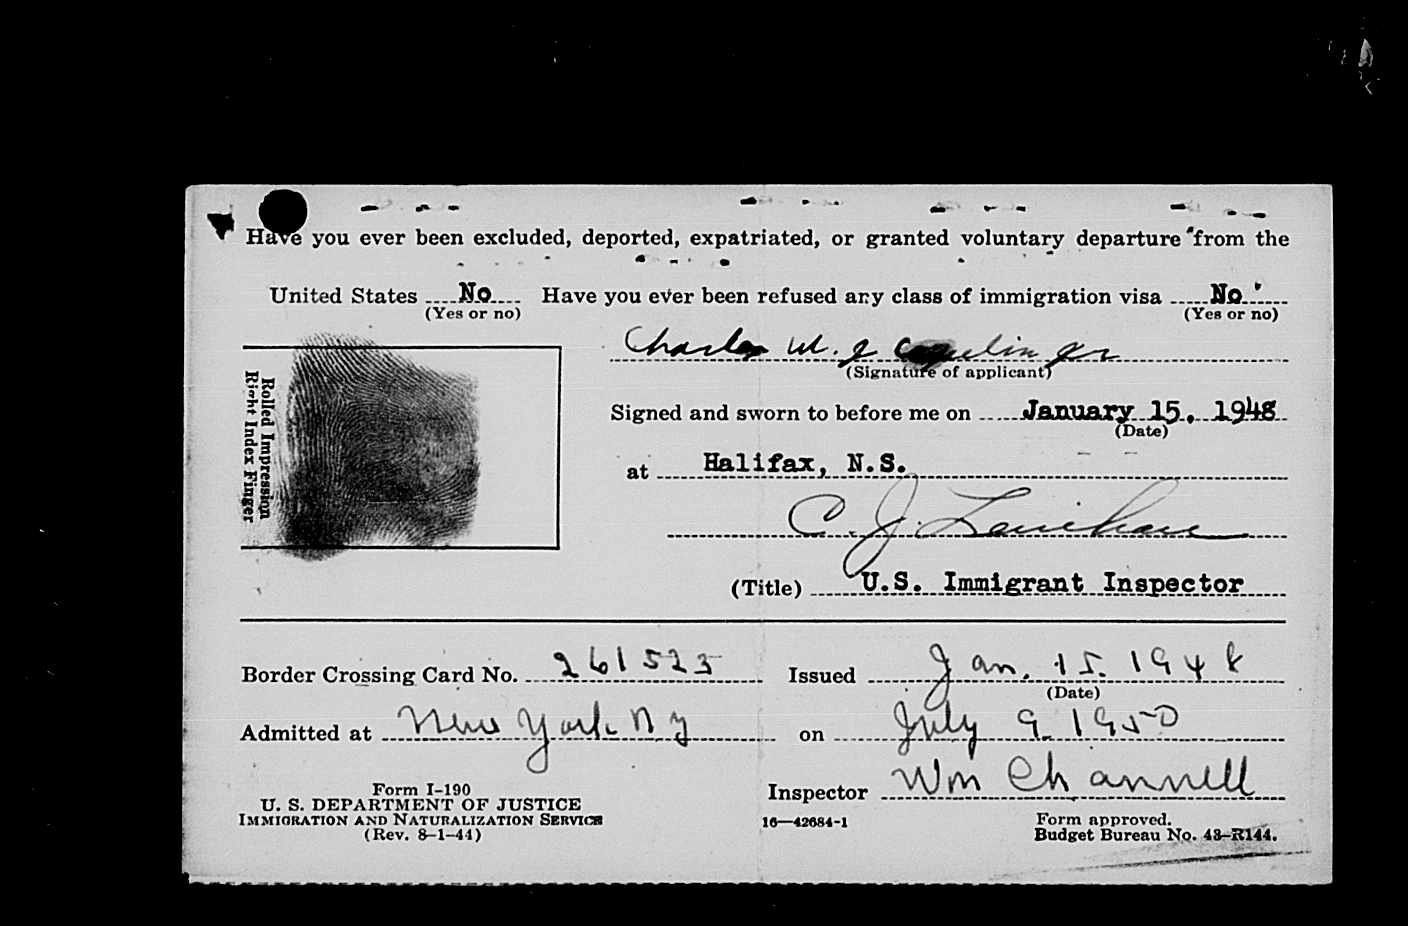 Have you ever been excluded, deported, expatriated, or granted voluntary departure from the
United States No Have you ever been refused any class of immigration visa No
(Yes or no) (Yes or no)
Charles W. J
(Signature of applicant)
Signed and sworn to before me on January 15, 1948
(Date)
at Halifax, N.S.
C. J.
(Title) U.S. Immigrant Inspector
Rolled Impression
Right Index Finger
Border Crossing Card No. 261523 Issued Jan. 15. 1948
(Date)
Admitted at New York N Y on July 9 1950
Inspector Wm Channell
Form I-190
U. S. DEPARTMENT OF JUSTICE
IMMIGRATION AND NATURALIZATION SERVICE
(Rev. 8-1-44)
16—42684-1
Form approved.
Budget Bureau No. 43-R144.